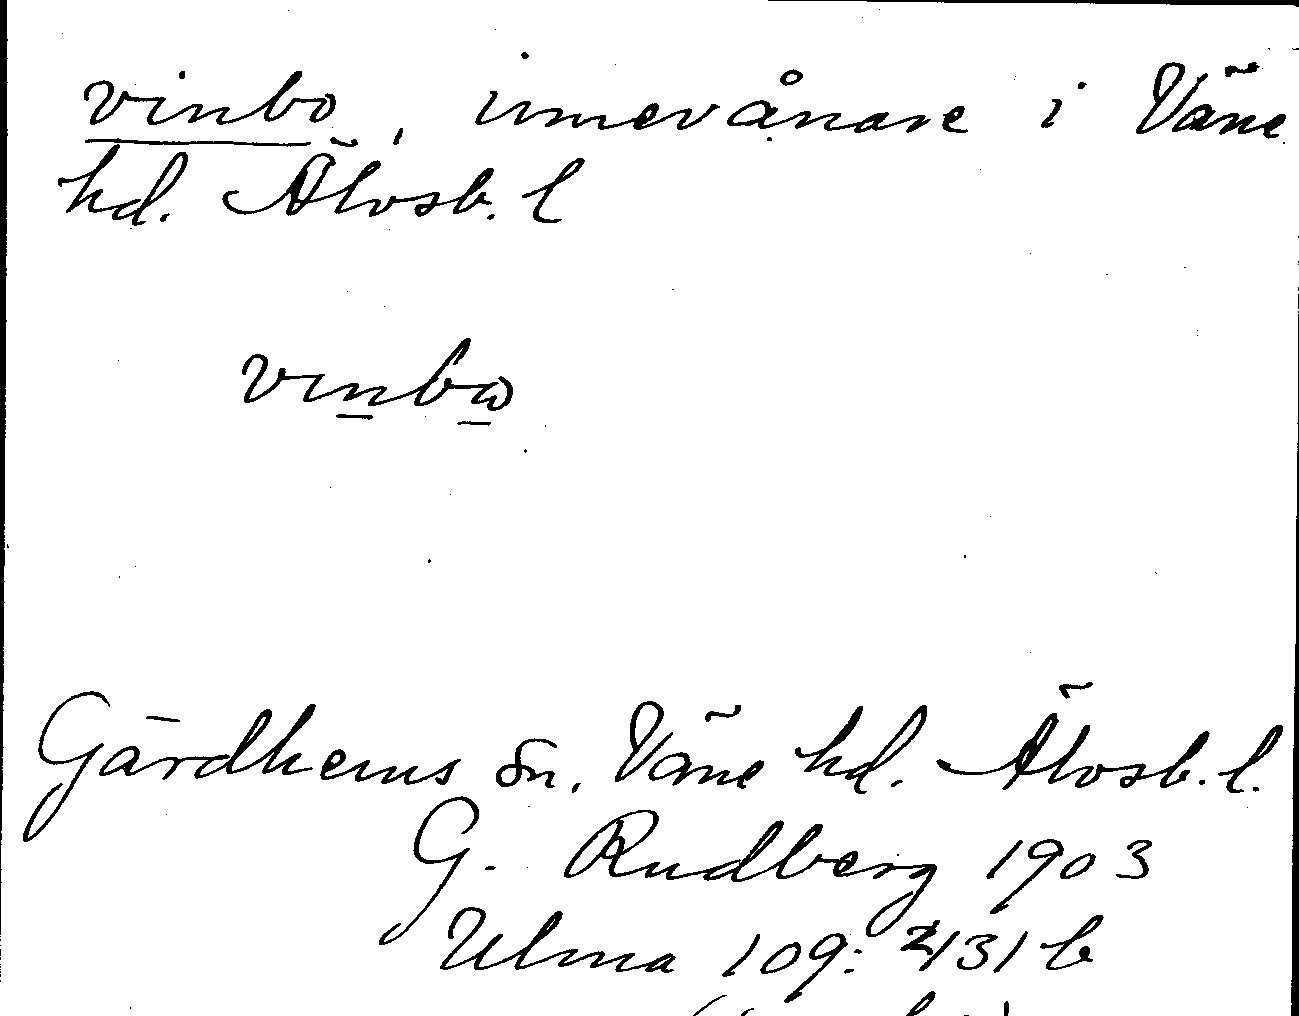 vinbo, innevånare i Väne
hd. Älvsb. l
vinbω
Gärdhems sn. Väne hd. Älvsb. l.
G. Rudberg 1903
Ulma 109: 2/31 b